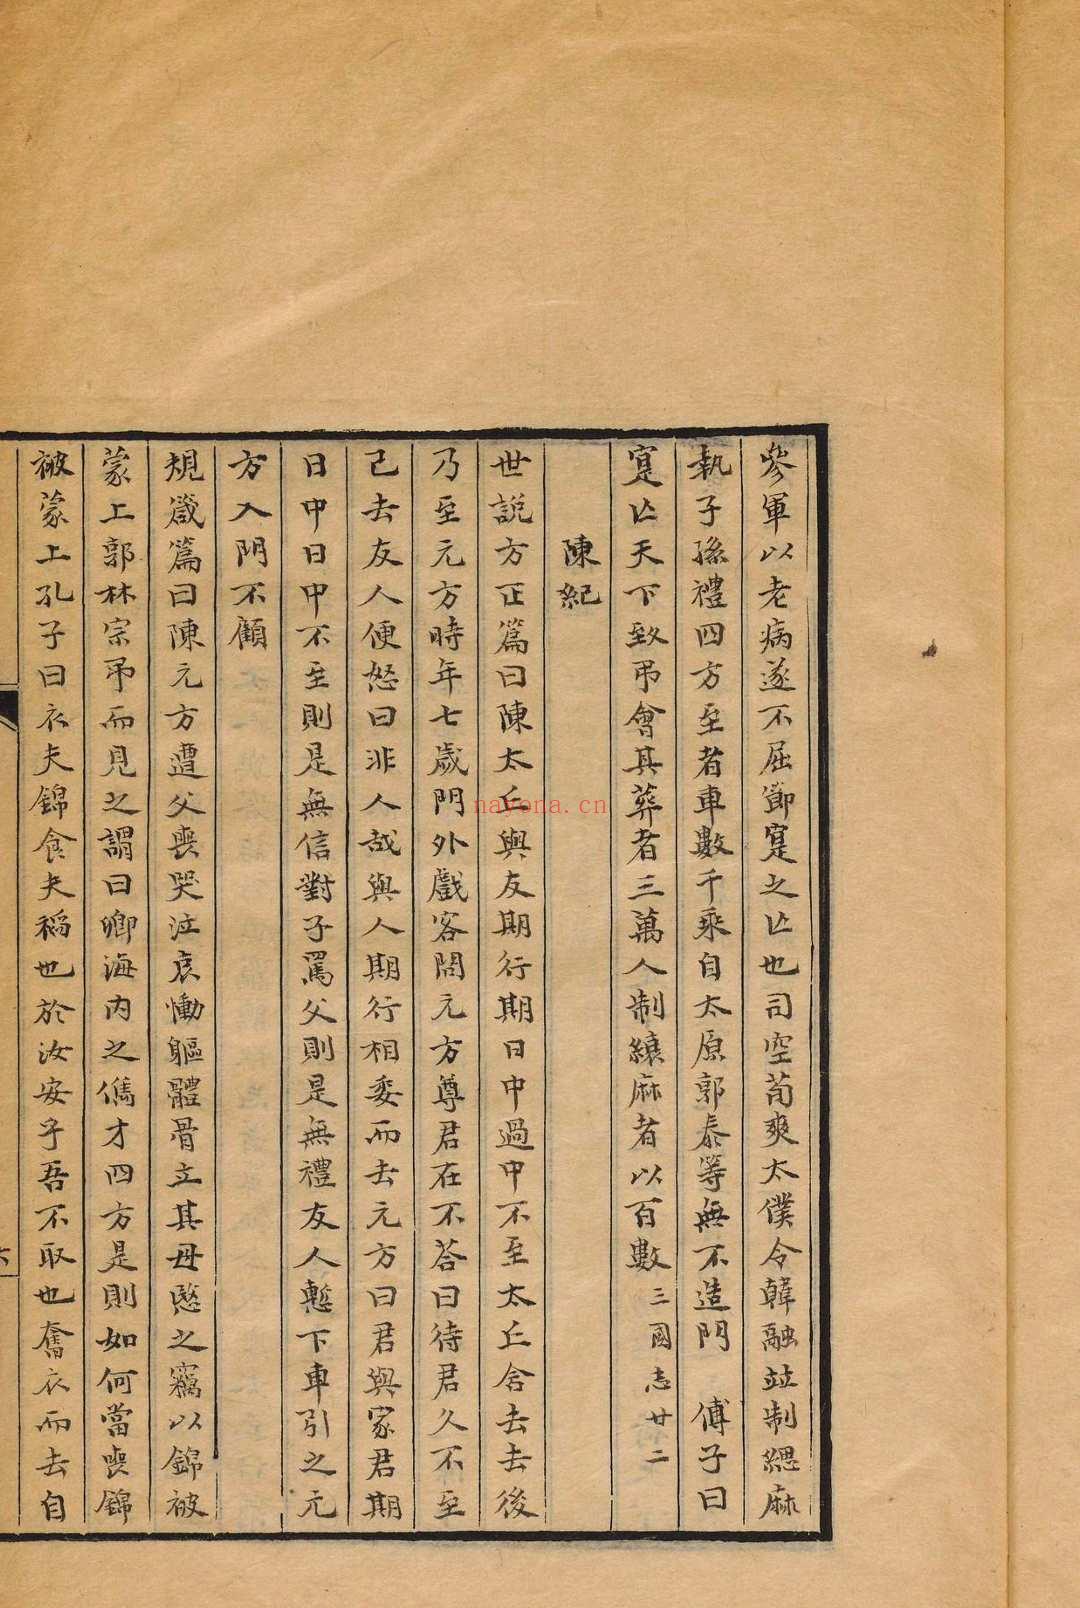 參軍以老病遂不屈節寔之亡也司空荀爽太僕令韓融並制緦麻
執子孫禮四方至者車數千乘自太原郭泰等無不造門 傅子曰
寔亡天下致弔會其葬者三萬人制縗麻者以百數三國志廿二
陳紀
世説方正篇曰陳太丘與友期行期日中過中不至太丘舍去去後
乃至元方時年七歲門外戲客問元方尊君在不荅曰待君久不至
已去友人便怒曰非人哉與人期行相委而去元方曰君與家君期
日中日中不至則是無信對子罵父則是無禮友人慙下車引之元
方入門不顧
規箴篇曰陳元方遭父喪哭泣哀慟軀體骨立其母愍之竊以錦被
蒙上郭林宗弔而見之謂曰卿海內之儁才四方是則如何當喪錦
被蒙上孔子曰衣夫錦食夫稻也於汝安乎吾不取也奮衣而去自
nayona.cn